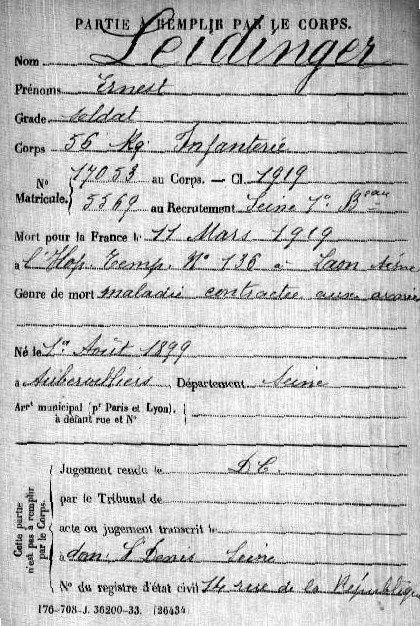 PARTIE À REMPLIR PAR LE CORPS.
Nom Leidinger
Prénoms Ernest
Grade Soldat
Corps 56 Rg Infanterie
N° Matricule. 17053 au Corps. — Cl. 1919
5569 au Recrutement Seine 1er Beau
Mort pour la France le 11 Mars 1919
à l'Hop. Temp. N° 136 à Laon Aisne
Genre de mort maladie contractée aux armées
Né le 1er Août 1899
à Aubervilliers Département Seine
Arr' municipal (pr Paris et Lyon),
à défaut rue et N°
Cette partie n'est pas à remplir par le Corps.
Jugement rendu le D C
par le Tribunal de
acte ou jugement transcrit le
à dom. St Denis Seine
N° du registre d'état civil 14 rue de la République
176-708-J. 36200-33. [26434]